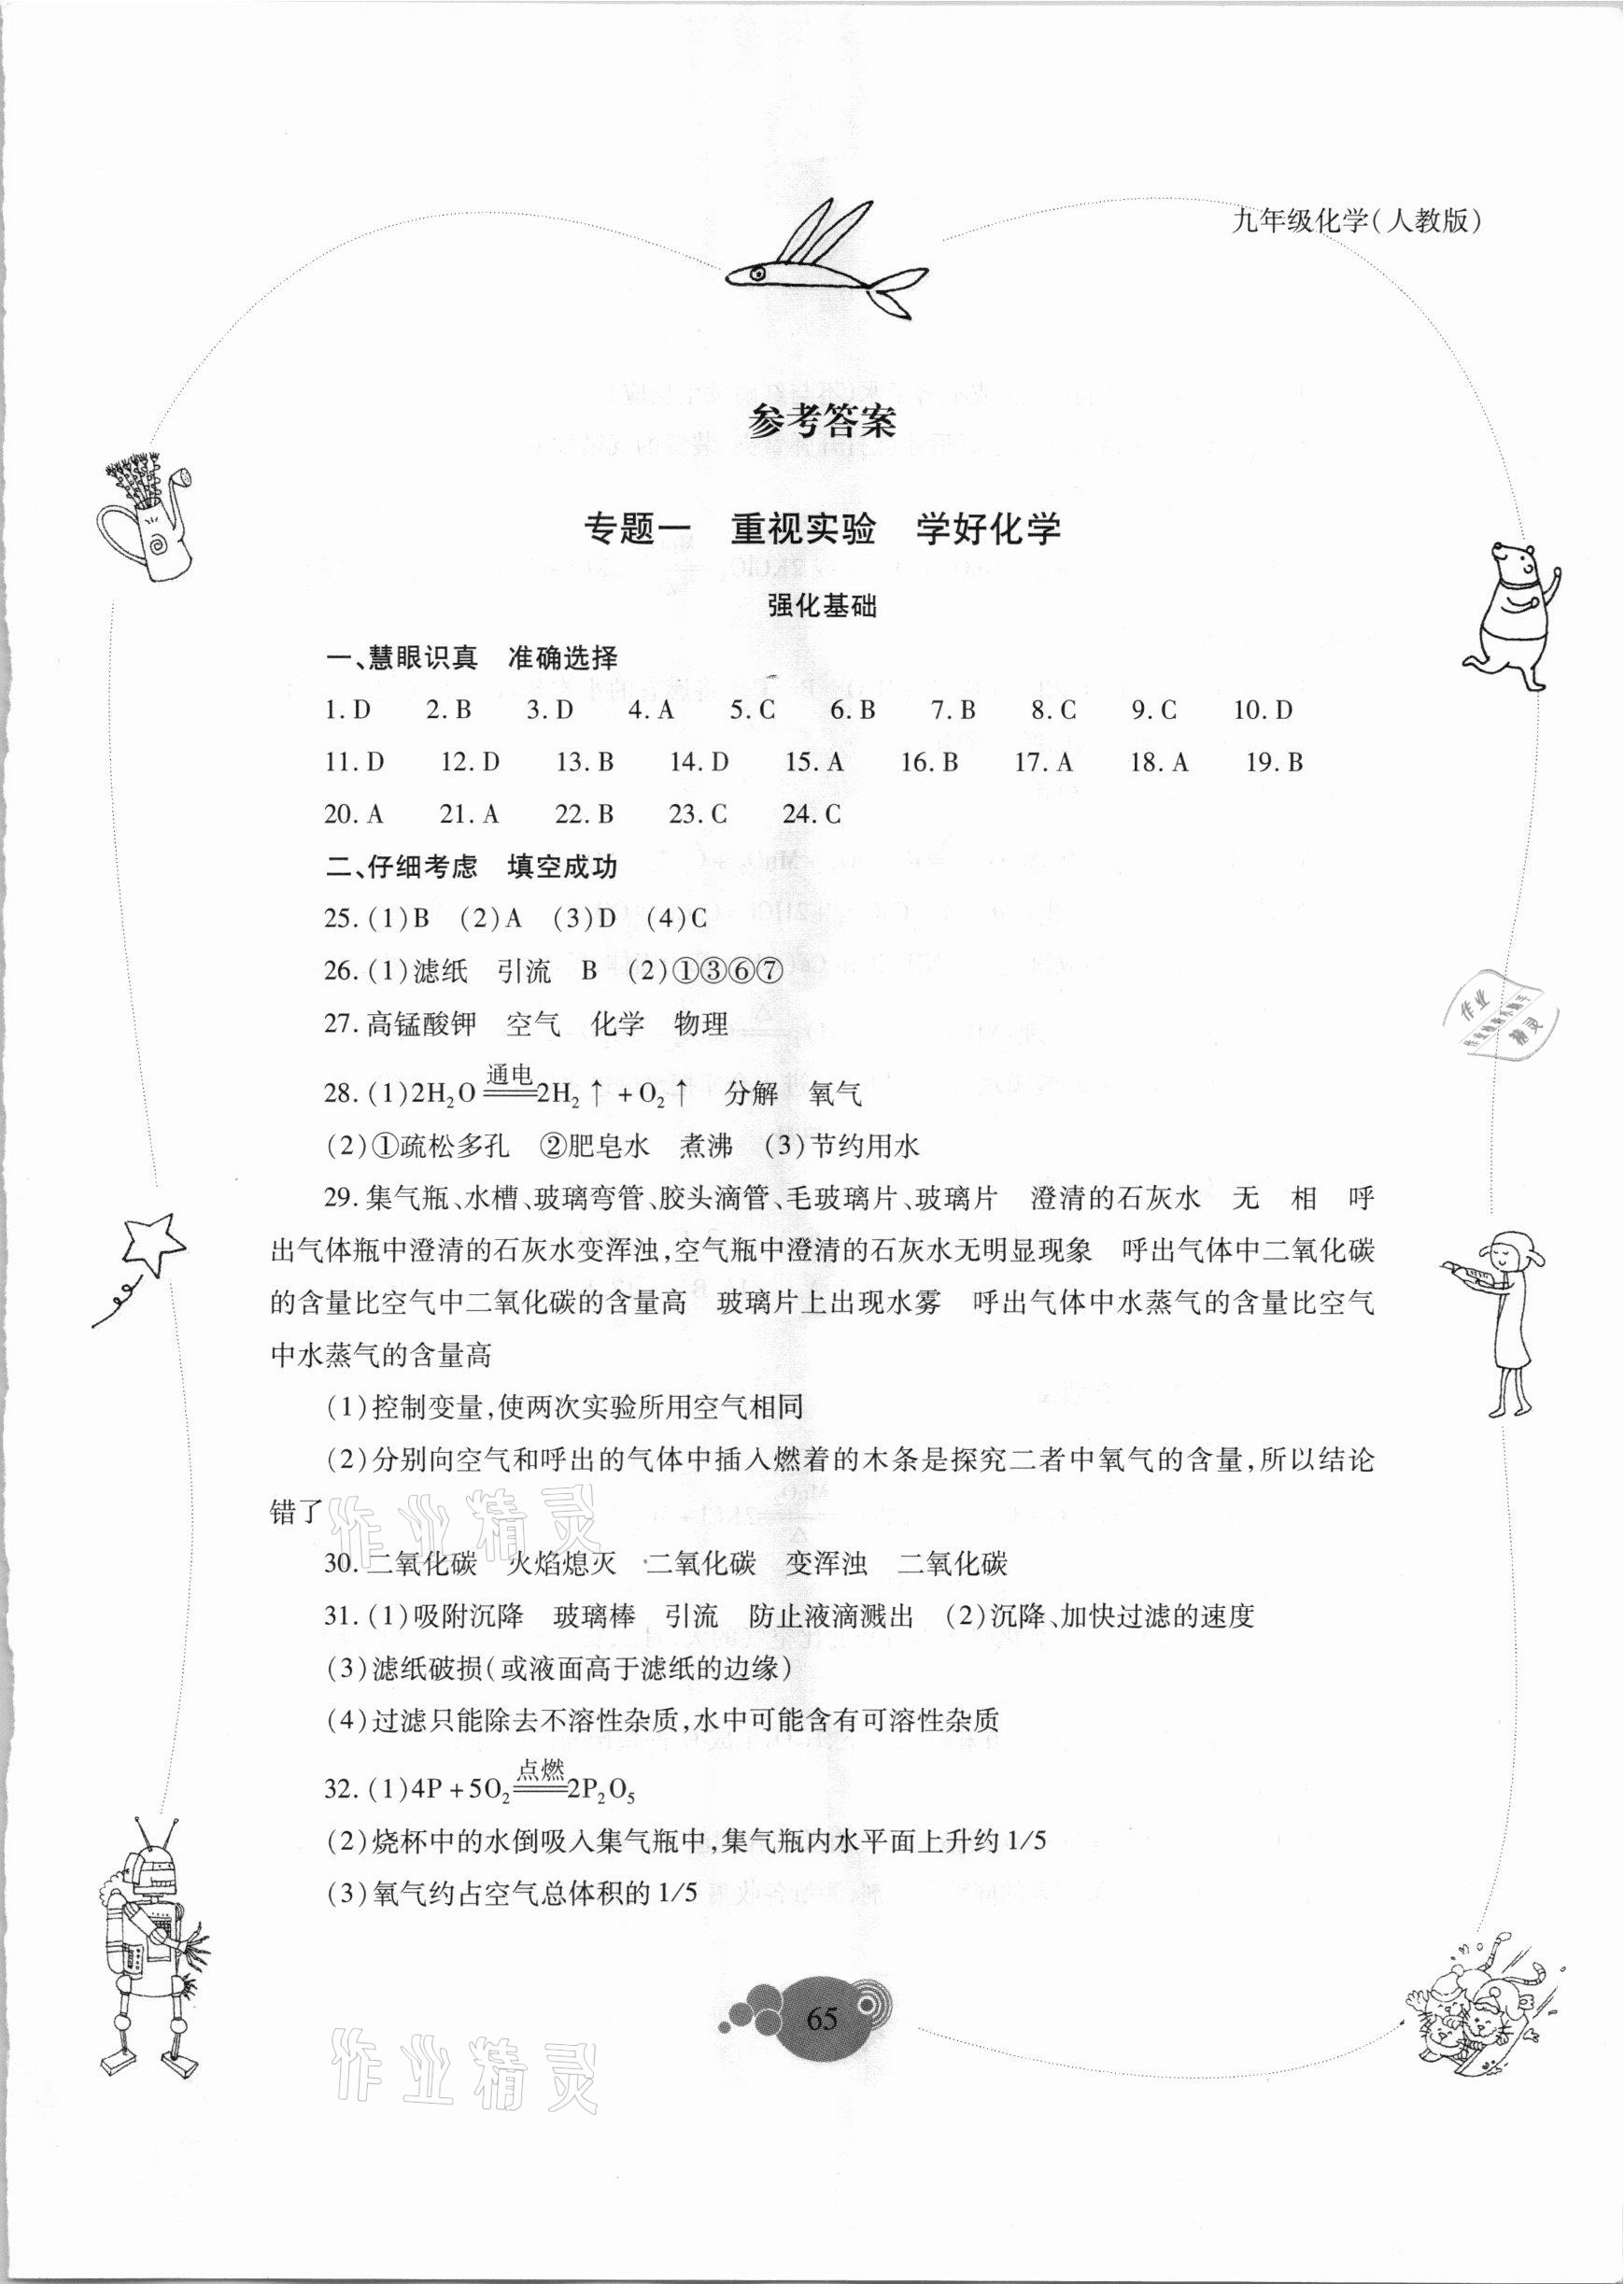 九年级化学(人教版)
参考答案
专题一 重视实验 学好化学
强化基础
一、慧眼识真 准确选择
1. D 2. B 3. D 4. A 5. C 6. B 7. B 8. C 9. C 10. D
11. D 12. D 13. B 14. D 15. A 16. B 17. A 18. A 19. B
20. A 21. A 22. B 23. C 24. C
二、仔细考虑 填空成功
25. (1)B (2)A (3)D (4)C
26. (1)滤纸 引流 B (2)①③⑥⑦
27. 高锰酸钾 空气 化学 物理
28. (1)2H₂O =通电= 2H₂↑+O₂↑ 分解 氧气
(2)①疏松多孔 ②肥皂水 煮沸 (3)节约用水
29. 集气瓶、水槽、玻璃弯管、胶头滴管、毛玻璃片、玻璃片 澄清的石灰水 无 相 呼
出气体瓶中澄清的石灰水变浑浊,空气瓶中澄清的石灰水无明显现象 呼出气体中二氧化碳
的含量比空气中二氧化碳的含量高 玻璃片上出现水雾 呼出气体中水蒸气的含量比空气
中水蒸气的含量高
(1)控制变量,使两次实验所用空气相同
(2)分别向空气和呼出的气体中插入燃着的木条是探究二者中氧气的含量,所以结论
错了
30. 二氧化碳 火焰熄灭 二氧化碳 变浑浊 二氧化碳
31. (1)吸附沉降 玻璃棒 引流 防止液滴溅出 (2)沉降、加快过滤的速度
(3)滤纸破损(或液面高于滤纸的边缘)
(4)过滤只能除去不溶性杂质,水中可能含有可溶性杂质
32. (1)4P+5O₂ =点燃= 2P₂O₅
(2)烧杯中的水倒吸入集气瓶中,集气瓶内水平面上升约1/5
(3)氧气约占空气总体积的1/5
65
作业精灵
作业精灵
作业
精灵